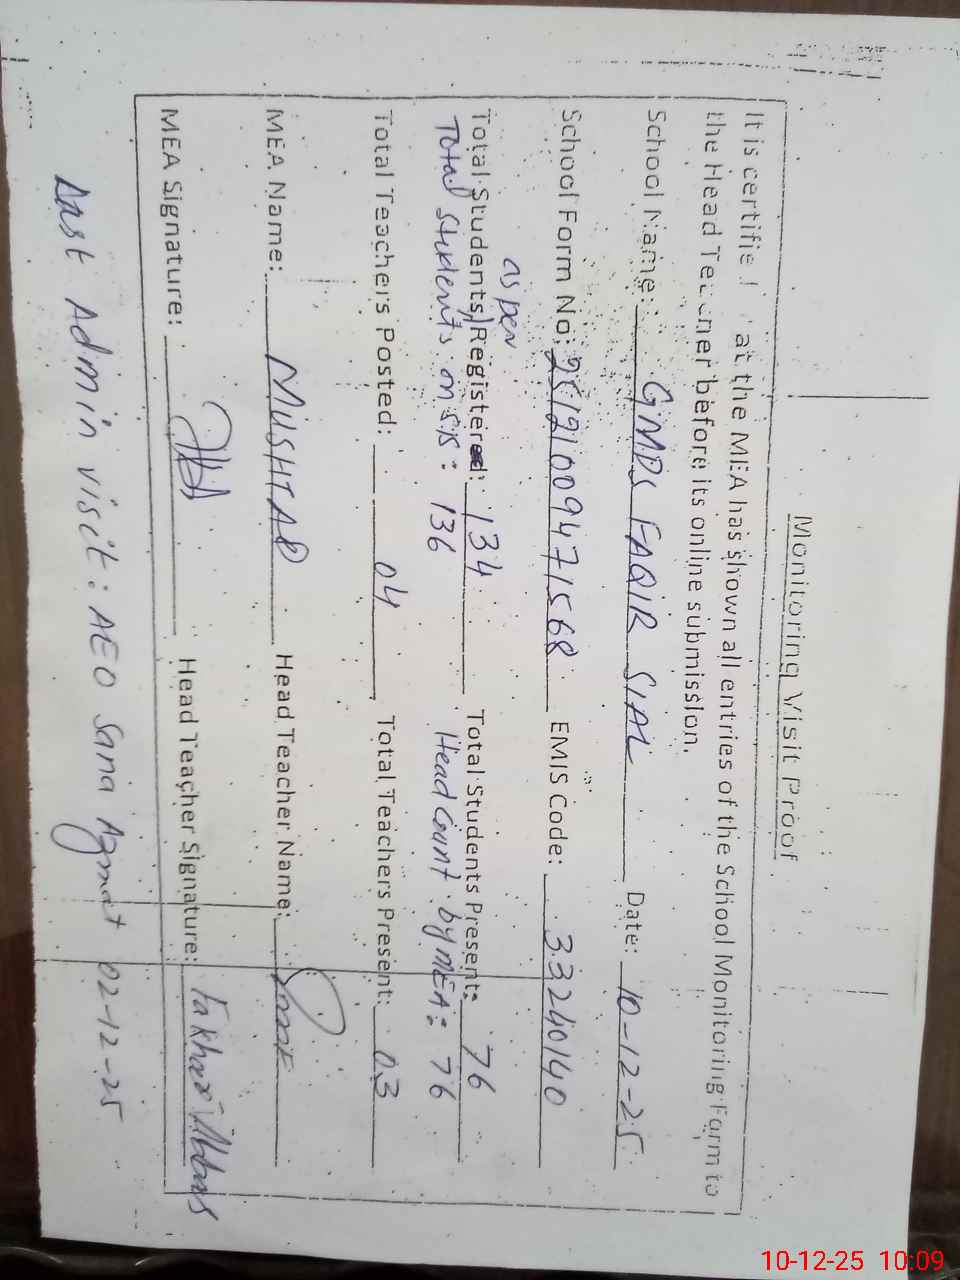 Monitoring Visit Proof
It is certified that the MEA has shown all entries of the School Monitoring Form to
the Head Teacher before its online submission.
School Name: GMPS FAQIR SIAL Date: 10-12-25
School Form No: 251210094715 68 EMIS Code: 33240140
as per
Total Students Registered: 134 Total Students Present: 76
Total Students on SIS: 136 Head Count by MEA: 76
Total Teachers Posted: 04 Total Teachers Present: 03
MEA Name: MUSHTAQ Head Teacher Name:
MEA Signature: Head Teacher Signature: Fakhar Abbas
Last Admin visit: AEO Sana 02-12-25
10-12-25 10:09